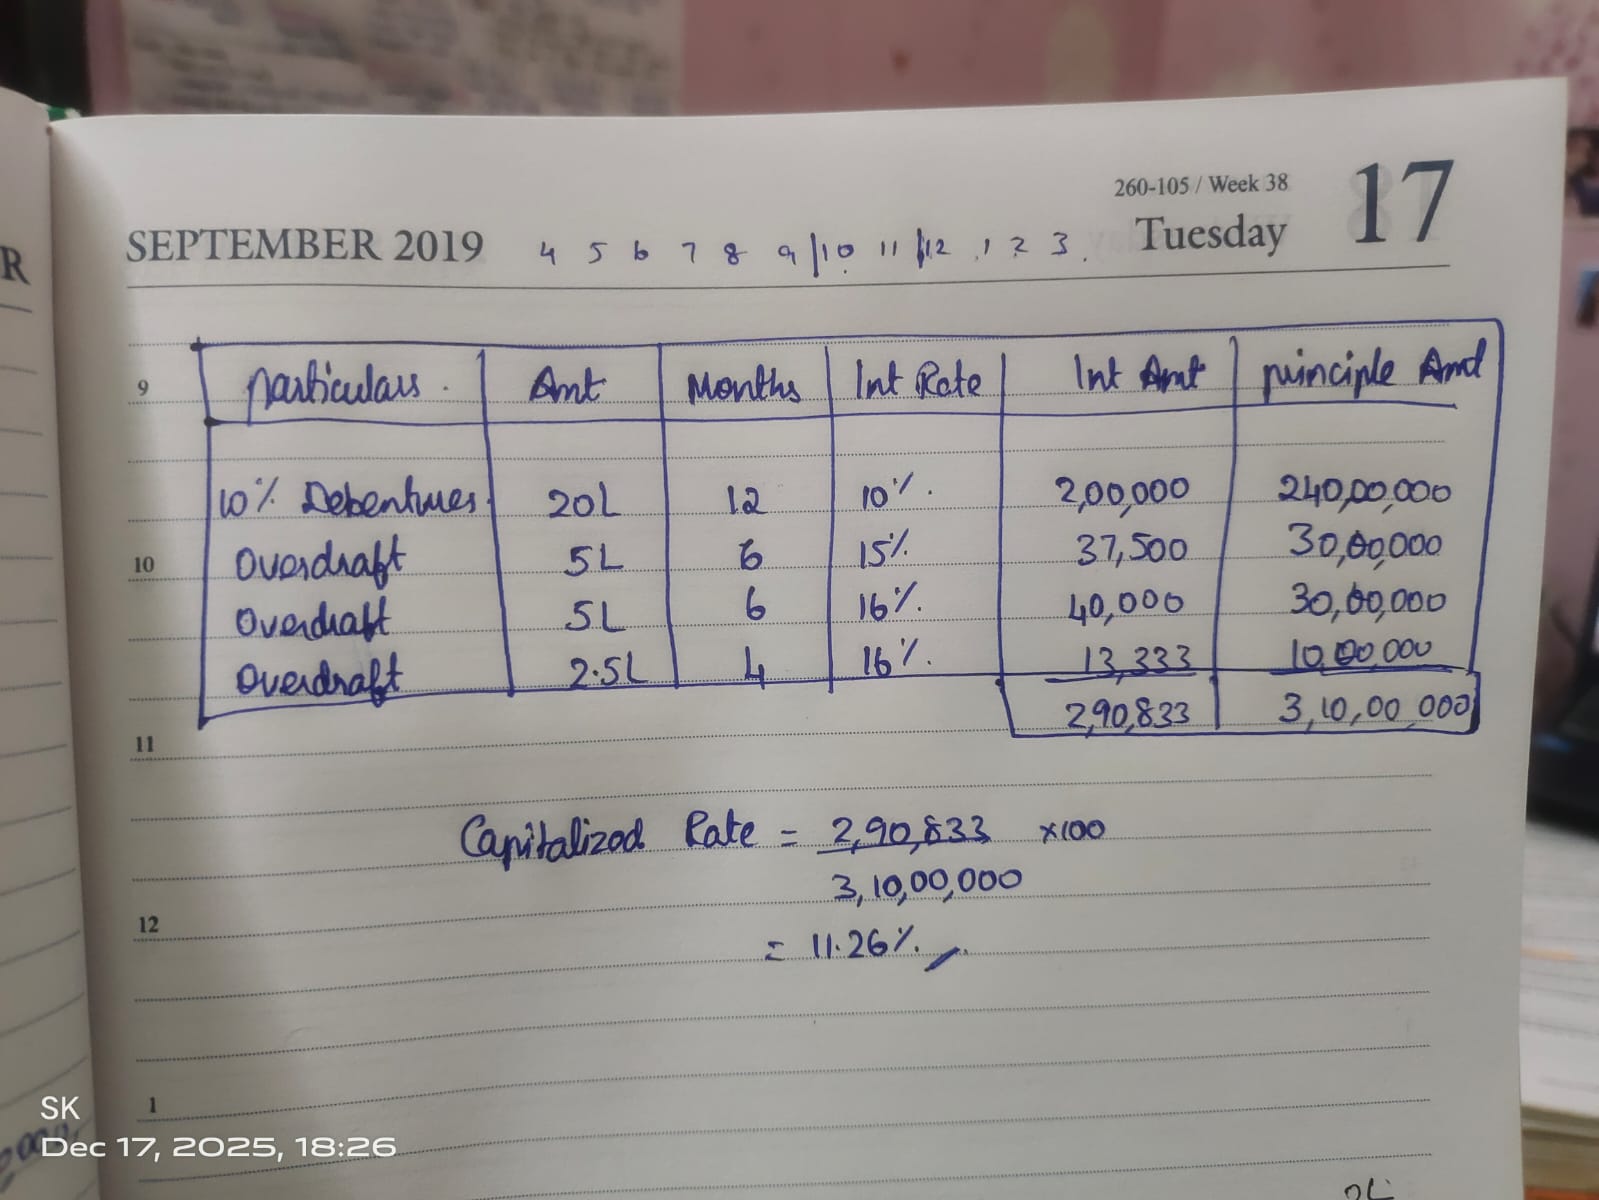 260-105 / Week 38
17
SEPTEMBER 2019 4 5 6 7 8 9/10 11/12 1 2 3 Tuesday
R
Particulars. Amt Months Int Rate Int Amt principle Amt
9
10% Debentures. 20L 12 10%. 2,00,000 240,00,000
10 Overdraft 5L 6 15% 37,500 30,00,000
Overdraft 5L 6 16%. 40,000 30,00,000
Overdraft 2.5L 4 16%. 13,333 10,00,000
2,90,833 3,10,00,000
11
Capitalized Rate = 2,90,833 ×100
3,10,00,000
12
= 11.26%.
1
SK
Dec 17, 2025, 18:26